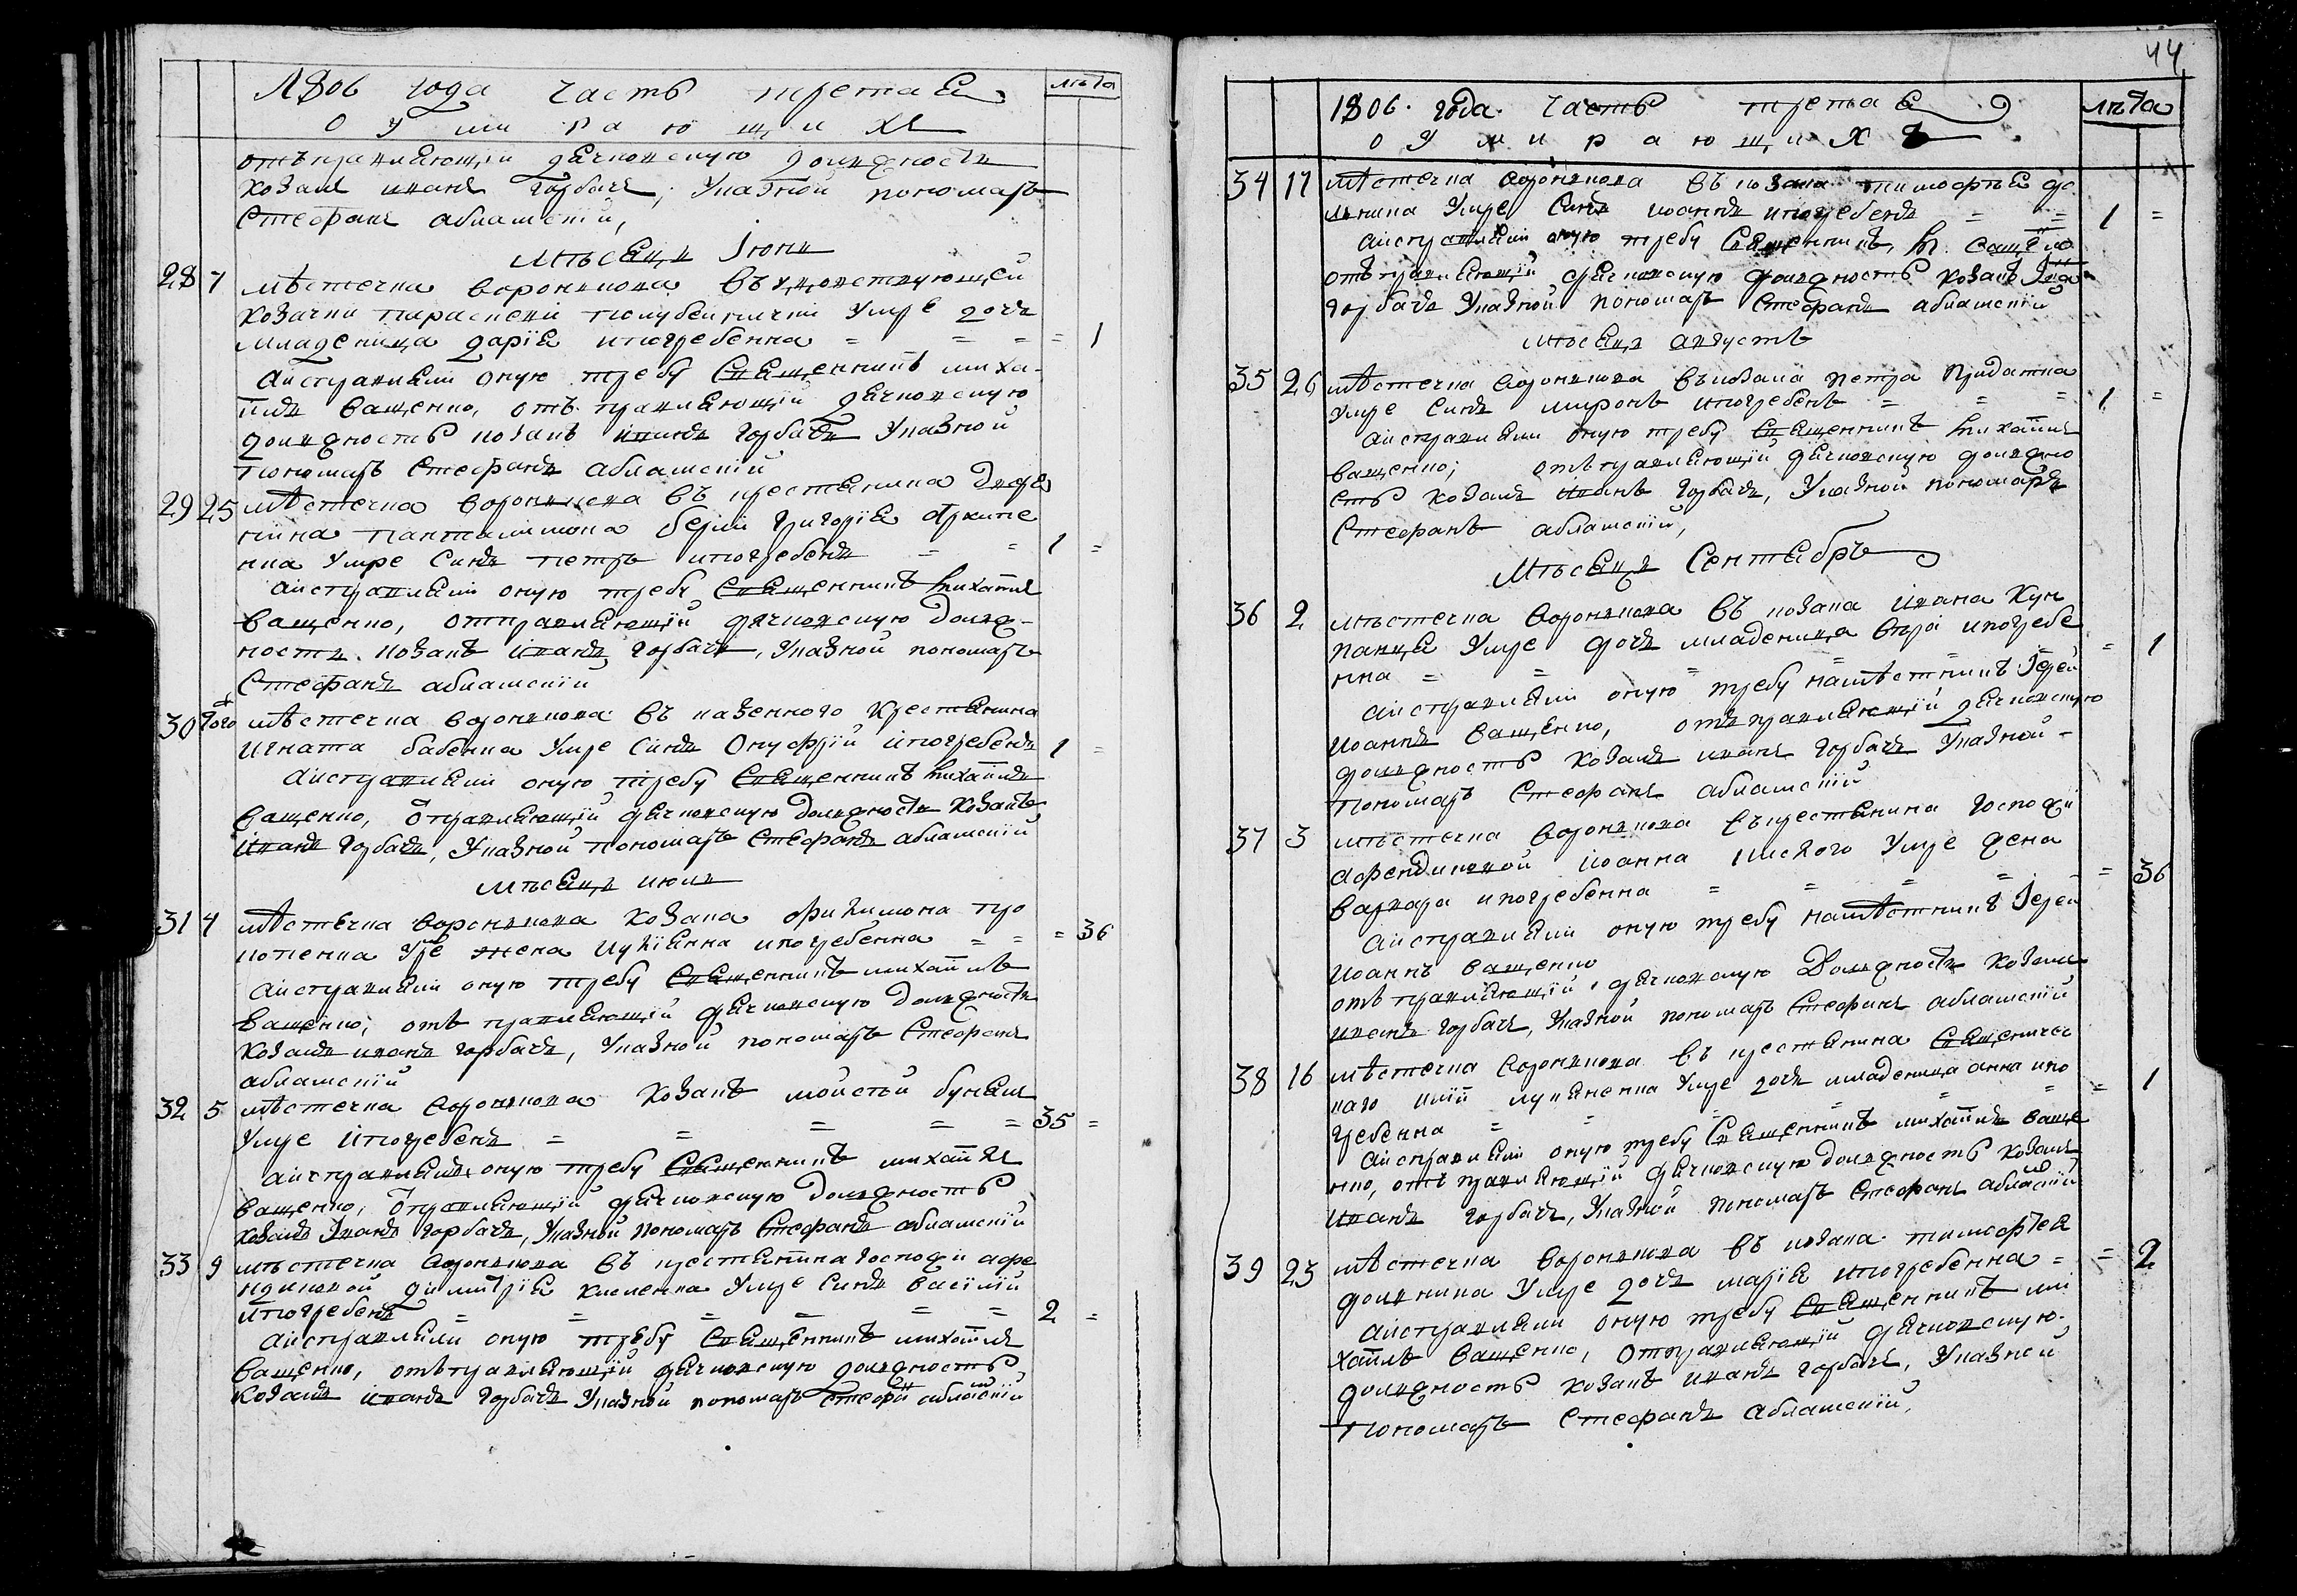 1806 года часть третая
лѣта
о умирающихъ
отъправляющій дячковскую должность
козакъ иванъ горбачъ, Указной пономарь
Стефанъ аблашскій,
мѣсяцъ Іюнь
28 7 мѣстечка воронкова вдовствующей
козачки параскеви умре дочь
младеница дарія ипогребенна = = = = 1
аисправлялъ оную требу Священникъ миха-
илъ ващенко, отъправляющій дячковскую
должность козакъ иванъ горбачъ Указной
пономарь Стефанъ аблашскій
29 25 мѣстечка воронкова въ крестянина
пантилимона григорія
умре Синъ петръ ипогребенъ = = 1 =
аисправлялъ оную требу Священникъ михаилъ
ващенко, отправляющій дячковскую долж-
ность козакъ иванъ горбачъ, Указной пономарь
Стефанъ аблашскій
30 того мѣстечка воронкова въ казенного крестянина
игната бабенка умре Синъ Онуфрій ипогребенъ 1 =
аисправлялъ оную требу Священникъ михаилъ
ващенко, отправляющій дячковскую должность козакъ
иванъ горбачъ, Указной пономарь Стефанъ аблашскій
мѣсяцъ июль
31 4 мѣстечка воронкова козака филимона про
копенка умре жена ипогребенна = = = 36
аисправлялъ оную требу Священникъ михаилъ
ващенко, отъ правляющій дячковскую должность
козакъ иванъ горбачъ, Указной пономарь Стефанъ
аблашскій
32 5 мѣстечка воронкова козакъ моисей
умре ипогребенъ = = = = = 35 =
аисправлялъ оную требу Священникъ михаилъ
ващенко, отправляющій дячковскую должность
козакъ Иванъ горбачъ, Указной пономарь Стефанъ аблашскій
33 9 мѣстечка воронкова въ крестянина господи афе
ндиковой димитрія умре Синъ василій
ипогребенъ = = = = = 2 =
аисправляли оную требу Священникъ михаилъ
ващенко, отъправляющій дячковскую должность
козакъ иванъ горбачъ Указной пономарь аблашскій
44
1806. года. Часть третая
лѣта
о умирающихъ
34 17 мѣстечка воронкова въ козака тимофѣя до
умре Синъ иоаннъ ипогребенъ = = 1 =
аисправлялъ оную требу Священникъ, М. ващенко
отъправляющій дячковскую должность козакъ
горбачъ Указной пономарь Стефанъ аблашскій
мѣсяцъ августъ
35 26 мѣстечка воронкова въ козака петра
умре Синъ миронъ ипогребенъ = = = 1 =
аисправляли оную требу Священникъ михаилъ
ващенко; отъправляющій дячковскую должно
сть козакъ иванъ горбачъ, Указной пономарь
Стефанъ аблашскій,
Мѣсяцъ Сентябръ
36 2 мѣстечка воронкова въ козака ивана
умре дочь младеница ипогребе
нна = = = = = = 1
аисправляли оную требу намѣстникъ Іерей
иоаннъ ващенко, отъправляющій дячковскую
должность козакъ иванъ горбачъ Указной-
пономарь Стефанъ аблашскій
37 3 мѣстечка воронкова въ крестянина господи
афендиковой иоанна умре жена
варвара ипогребенна = = = = = 36
аисправляли оную требу намѣстникъ Іерей
иоаннъ ващенко
отъправляющій, дячковскую должность козакъ
иванъ горбачъ, Указной пономарь Стефанъ аблашскій
38 16 мѣстечка воронкова въ крестянина Священичес
каго умре дочь младеница анна ипо
гребенна = = = = = = 1
аисправлялъ оную требу Священникъ михаилъ ваще
нко, отъправляющій дячковскую должность козакъ
иванъ горбачъ, Указной пономарь Стефанъ аблашскій
39 23 мѣстечка воронкова въ козака тимофѣя
умре дочь марія ипогребенна = = 2
аисправляли оную требу Священникъ ми
хаилъ ващенко, отправляющій дячковскую.
должность козакъ иванъ горбачъ, Указной
пономарь Стефанъ аблашскій,